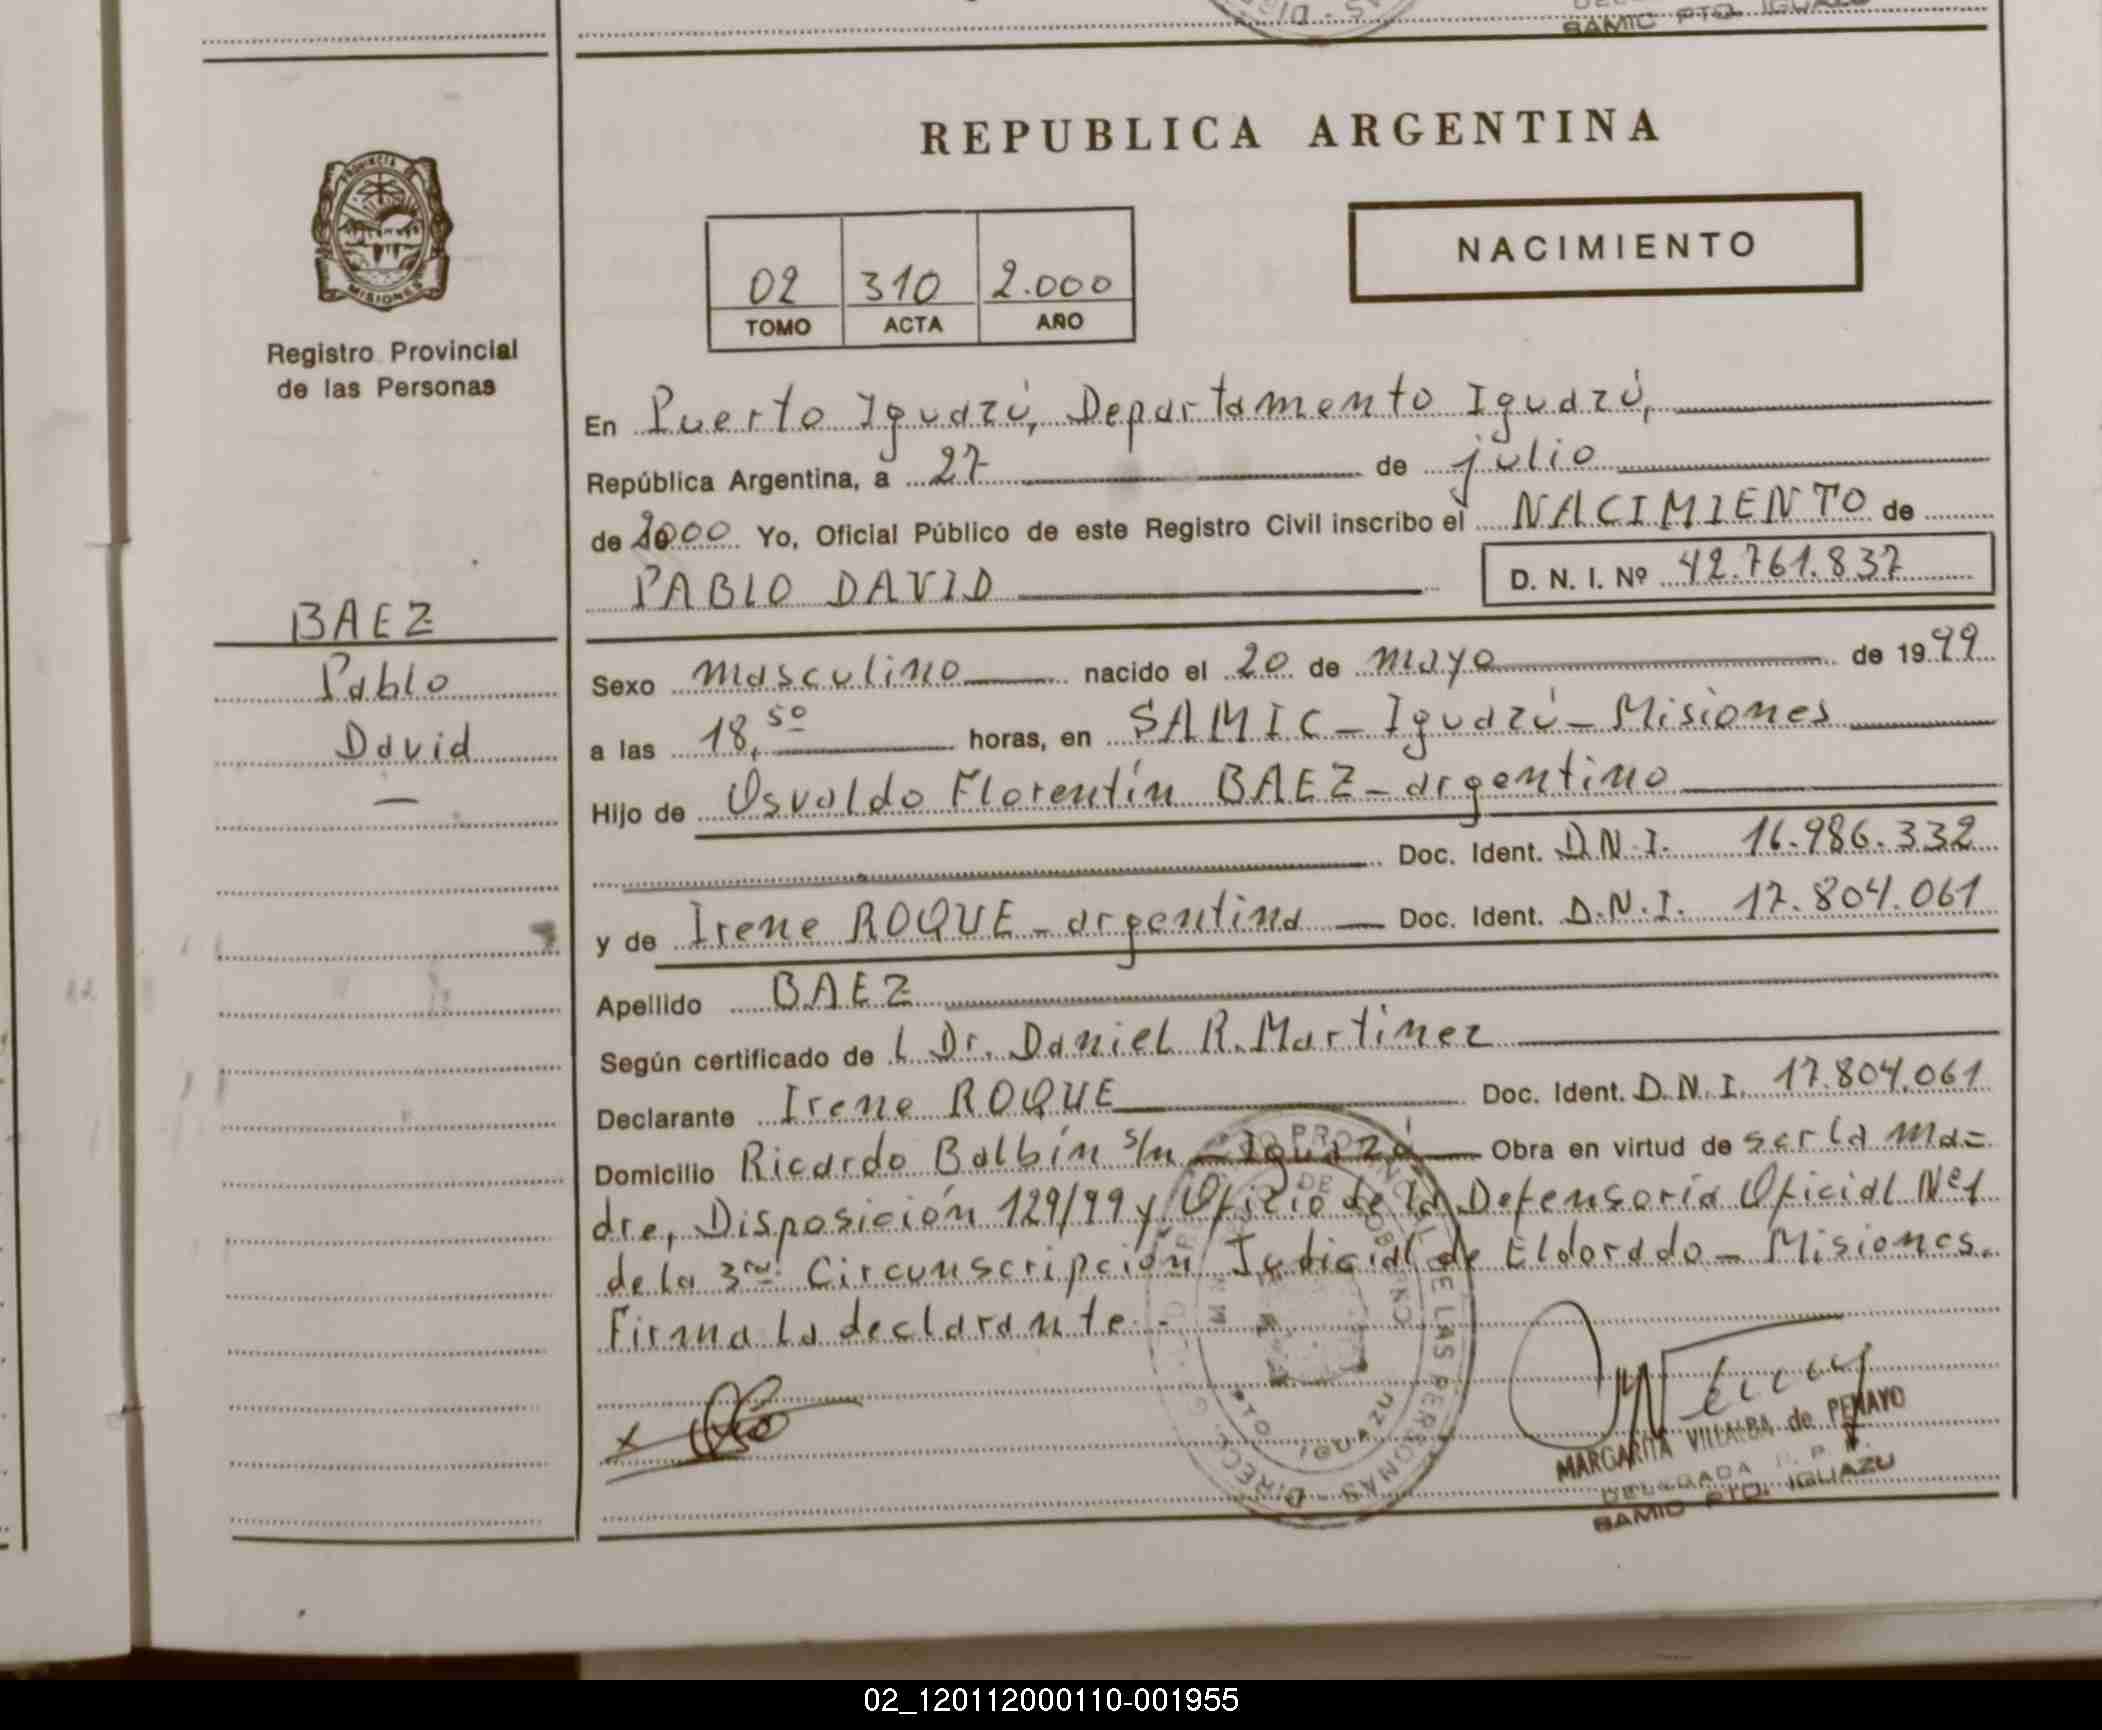 SAMIC PTO. IGUAZU
REPUBLICA ARGENTINA
PROVINCIA DE
MISIONES
NACIMIENTO
02 310 2.000
TOMO ACTA AÑO
Registro Provincial
de las Personas
En Puerto Iguazú, Departamento Iguazú,
República Argentina, a 27 de julio
de 2000 Yo, Oficial Público de este Registro Civil inscribo el NACIMIENTO de
PABLO DAVID D. N. I. Nº 42.761.837
BAEZ
Pablo
David
—
Sexo masculino nacido el 20 de mayo de 1999
a las 18,50 horas, en SAMIC - Iguazú - Misiones
Hijo de Osvaldo Florentín BAEZ - argentino
Doc. Ident. D.N.I. 16.986.332
y de Irene ROQUE - argentina — Doc. Ident. D.N.I. 17.804.061
Apellido BAEZ
Según certificado de l Dr. Daniel R. Martinez
Declarante Irene ROQUE Doc. Ident. D.N.I. 17.804.061
Domicilio Ricardo Balbín s/n - Iguazú Obra en virtud de ser la ma=
dre, Disposición 129/99 y Oficio de la Defensoría Oficial Nº1
de la 3ra Circunscripción Judicial de Eldorado - Misiones.
Firma la declarante.-
x
DIRECC. G. PROVINCIAL DE LAS PERSONAS
PTO. IGUAZU
MARGARITA VILLALBA de PENAYO
DELEGADA R. P.
SAMIC PTO. IGUAZU
02_120112000110-001955